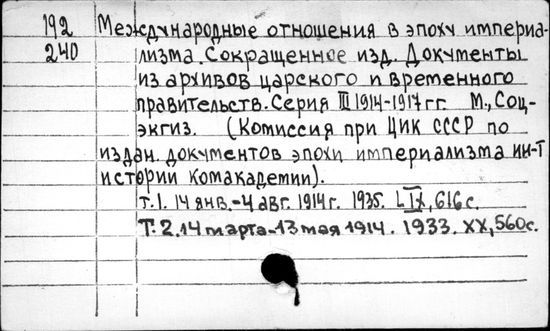 192 Международные отношения в эпоху империа-
240 лизма. Сокращенное изд. Документы
из архивов царского и временного
правительств. Серия III 1914-1917 гг. М., Соц-
экгиз. (Комиссия при ЦИК СССР по
издан. документов эпохи империализма ин-т
истории Комакадемии).
т. 1. 14 янв.-4 авг. 1914 г. 1935. LIX, 616 с.
Т. 2. 14 марта-13 мая 1914. 1933. XX, 560 с.